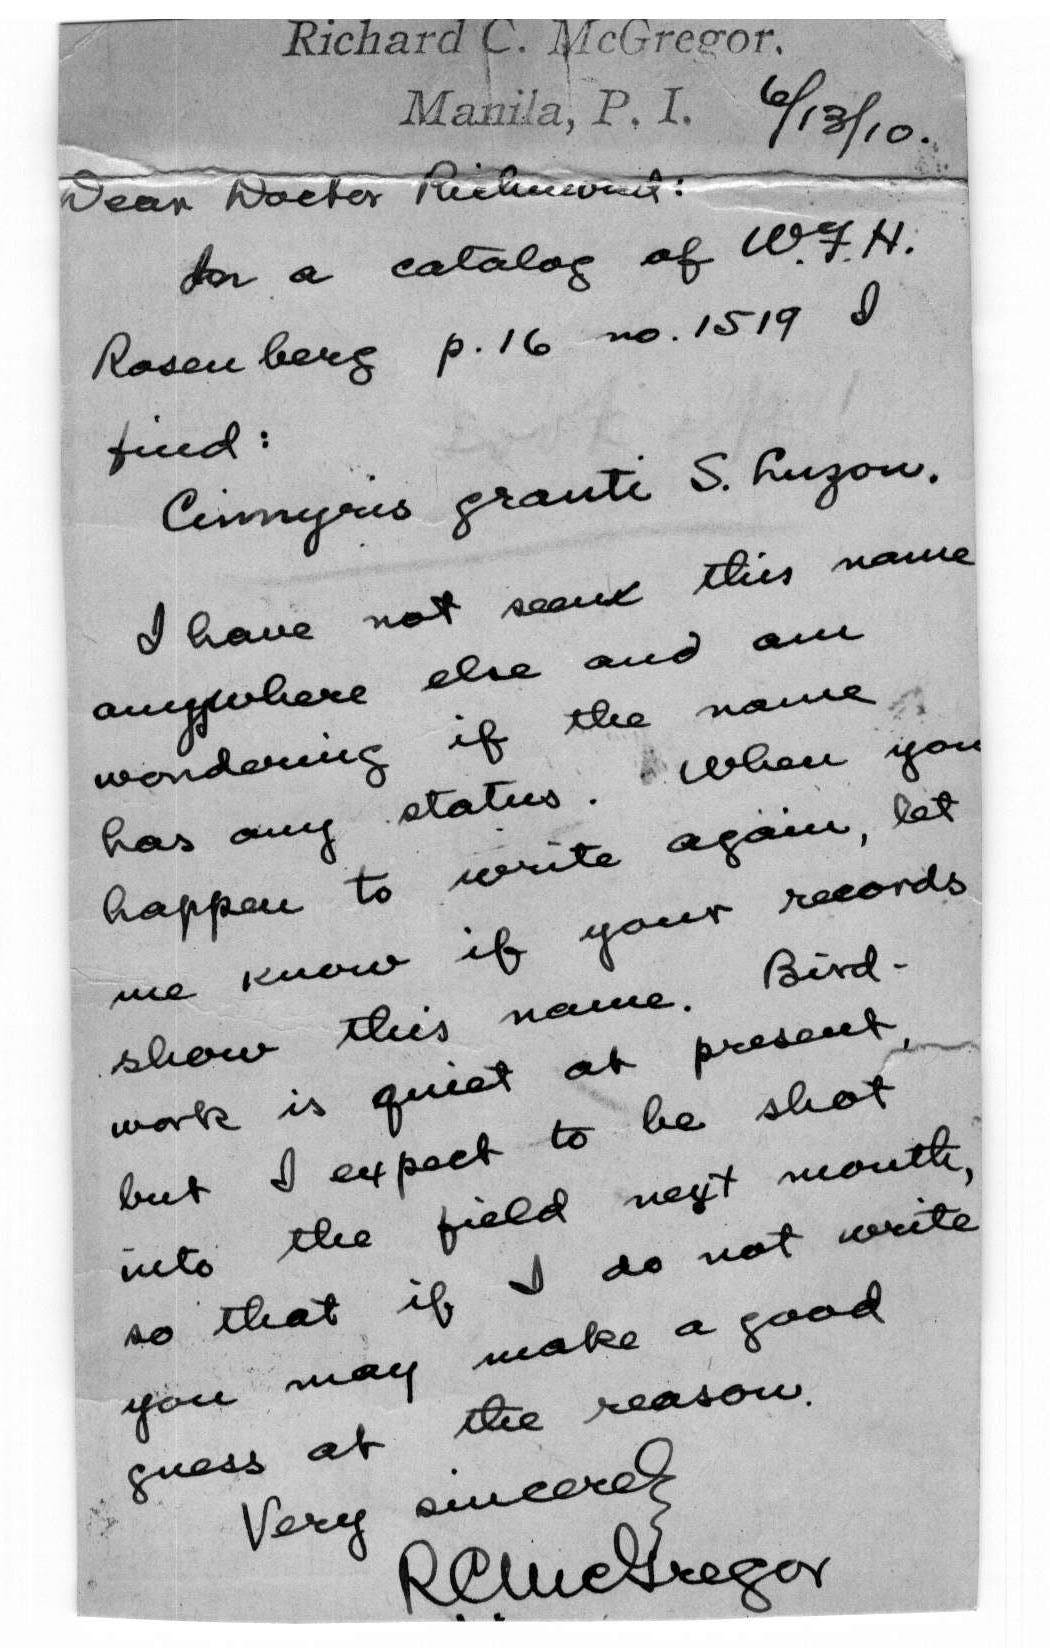 Richard C. McGregor.
Manila, P. I.
6/13/10.
Dear Doctor Richmond:
In a catalog of W.F.H.
Rosenberg p. 16 no. 1519 I
find:
Cinnyris granti S. Luzon.
I have not seen this name
anywhere else and am
wondering if the name
has any status. When you
happen to write again, let
me know if your records
show this name. Bird-
work is quiet at present,
but I expect to be shot
into the field next month,
so that if I do not write
you may make a good
guess at the reason.
Very sincerely
RCMcGregor